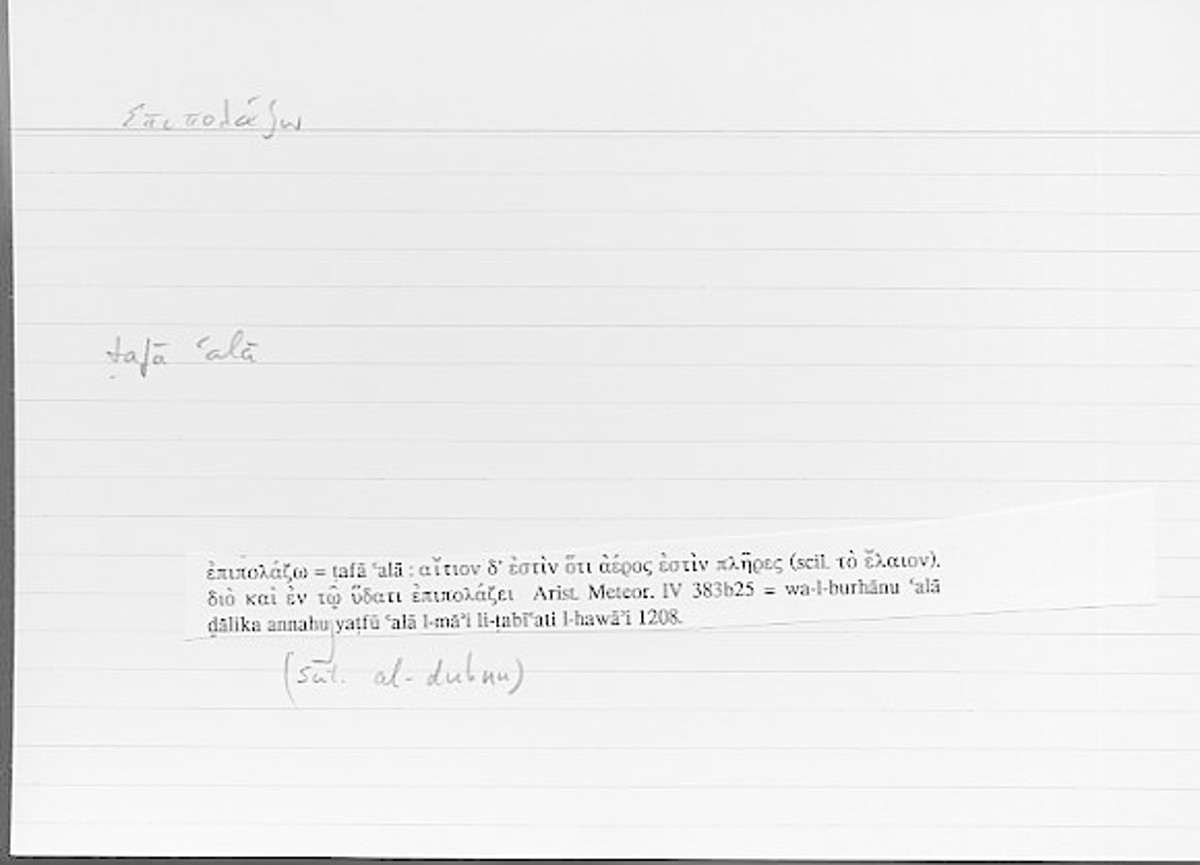 ἐπιπολάζω
ṭafā ʿalā
ἐπιπολάζω = ṭafā ʿalā : αἴτιον δ' ἐστὶν ὅτι ἀέρος ἐστὶν πλῆρες (scil. τὸ ἔλαιον).
διὸ καὶ ἐν τῷ ὕδατι ἐπιπολάζει Arist. Meteor. IV 383b25 = wa-l-burhānu ʿalā
ḏālika annahu yaṭfū ʿalā l-māʾi li-ṭabīʿati l-hawāʾi 1208.
(scil. al-duhnu)